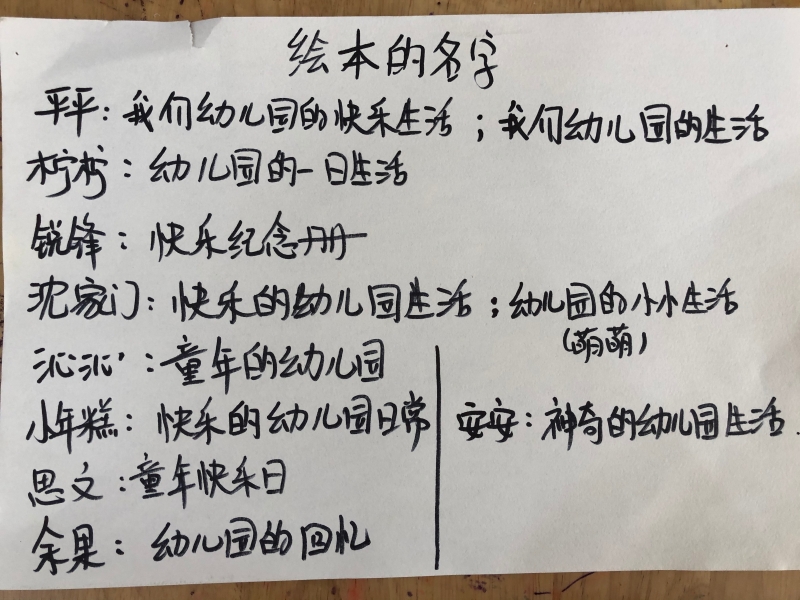 绘本的名字
平平：我们幼儿园的快乐生活；我们幼儿园的生活
柠柠：幼儿园的一日生活
锐锋：快乐纪念册
沈家门：快乐的幼儿园生活；幼儿园的小小生活
（萌萌）
沁沁：童年的幼儿园
小年糕：快乐的幼儿园日常
安安：神奇的幼儿园生活.
思文：童年快乐日
余果：幼儿园的回忆